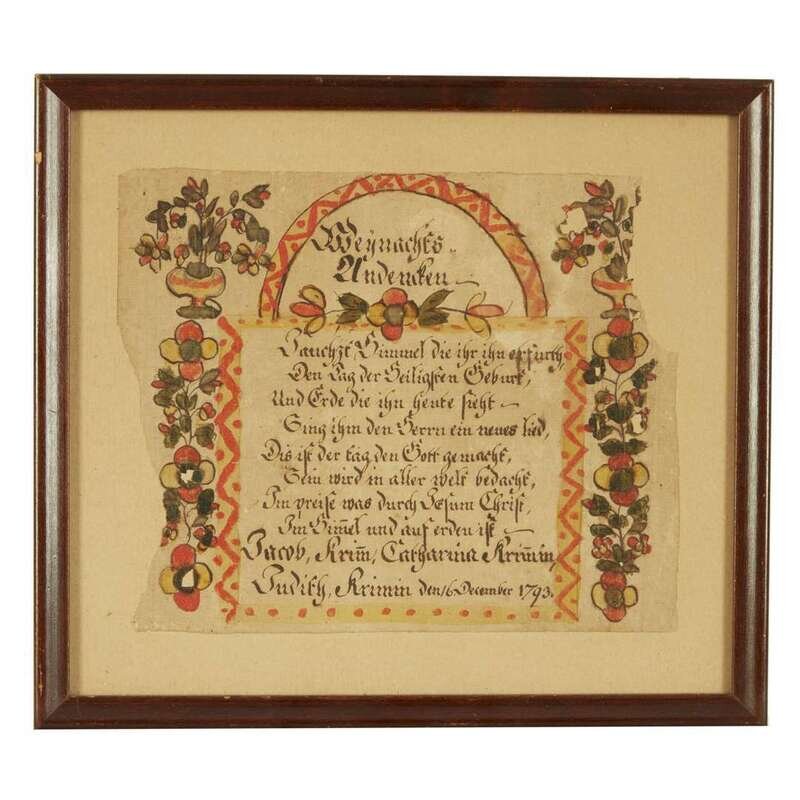 Weynachts
Andencken
Jauchzt Himmel die ihr ihn erfurth,
Den Tag der Heiligsten Geburt,
Und Erde die ihn heute sieht
Sing ihm den Herrn ein neues lied,
Dis ist der tag den Gott gemacht,
Sein wird in aller welt bedacht,
Ihn preise was durch Jesum Christ,
Im Himel und auf erden ist
Jacob, Krim̅, Catharina Krimin
Judith, Krimin den 16 December 1793.